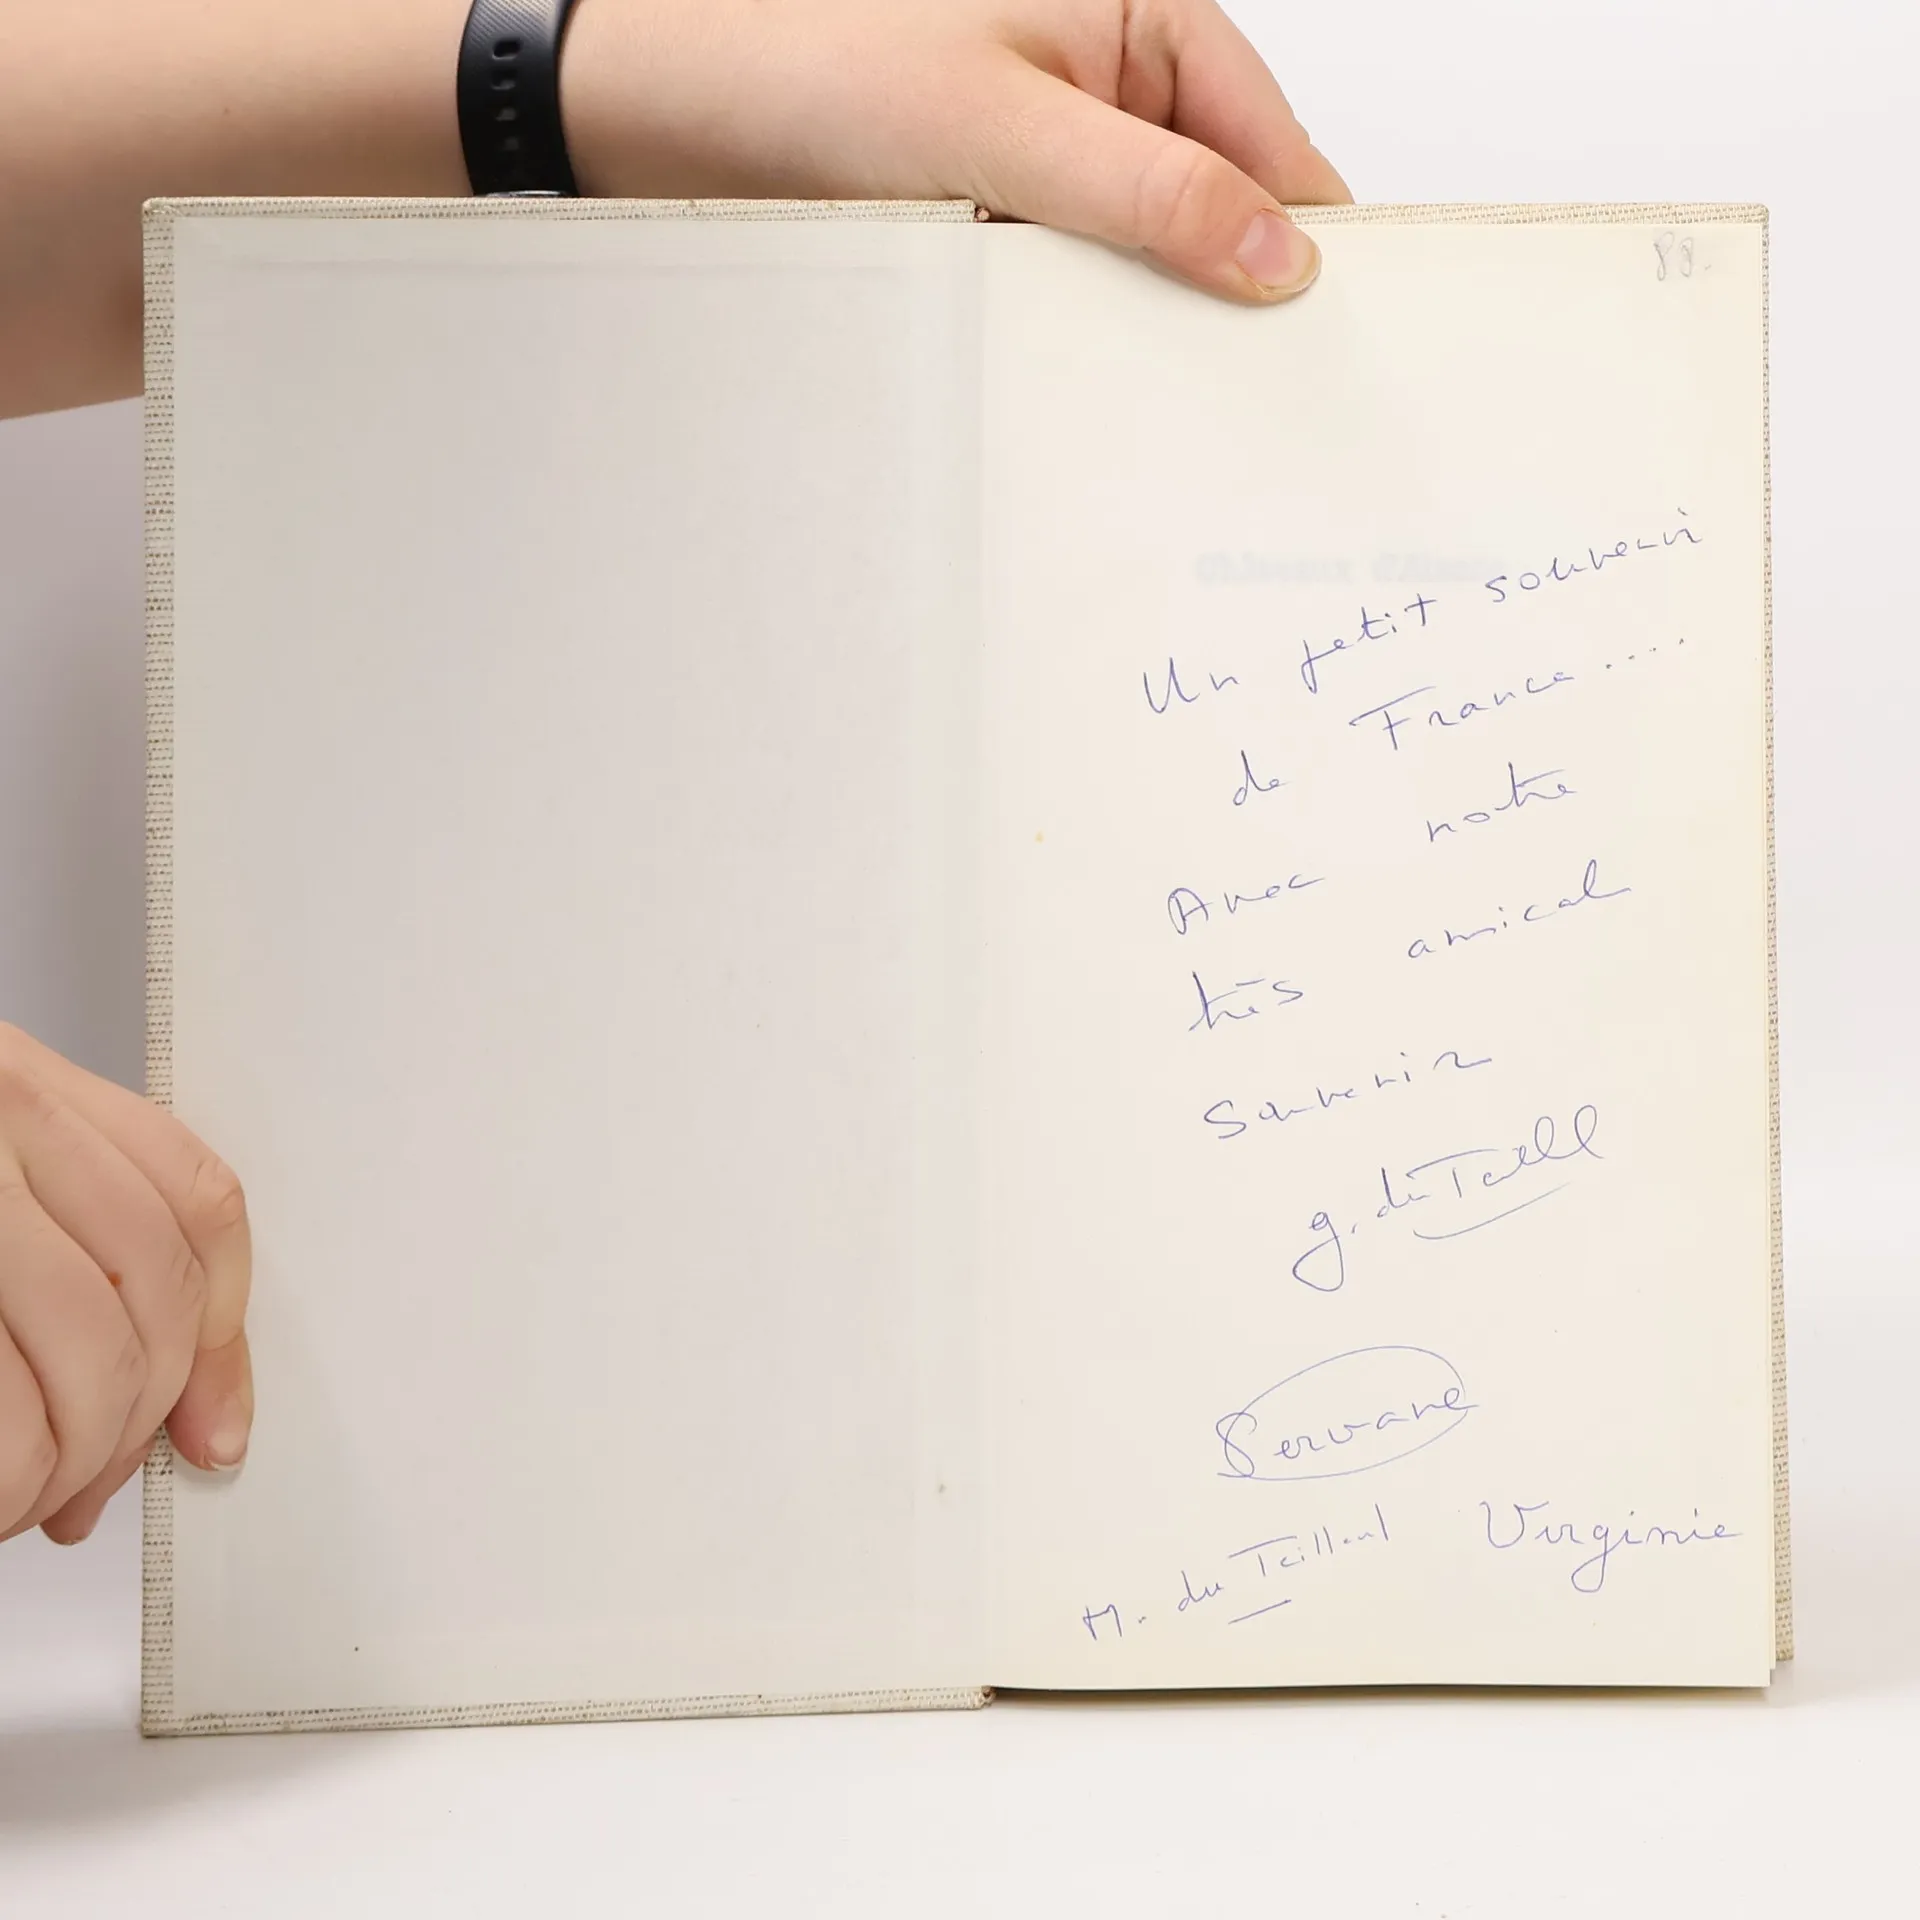 88.
Un petit souvenir
de France....
Avec notre
très amical
Souvenir
g. du
Pervane
M. du Virginie